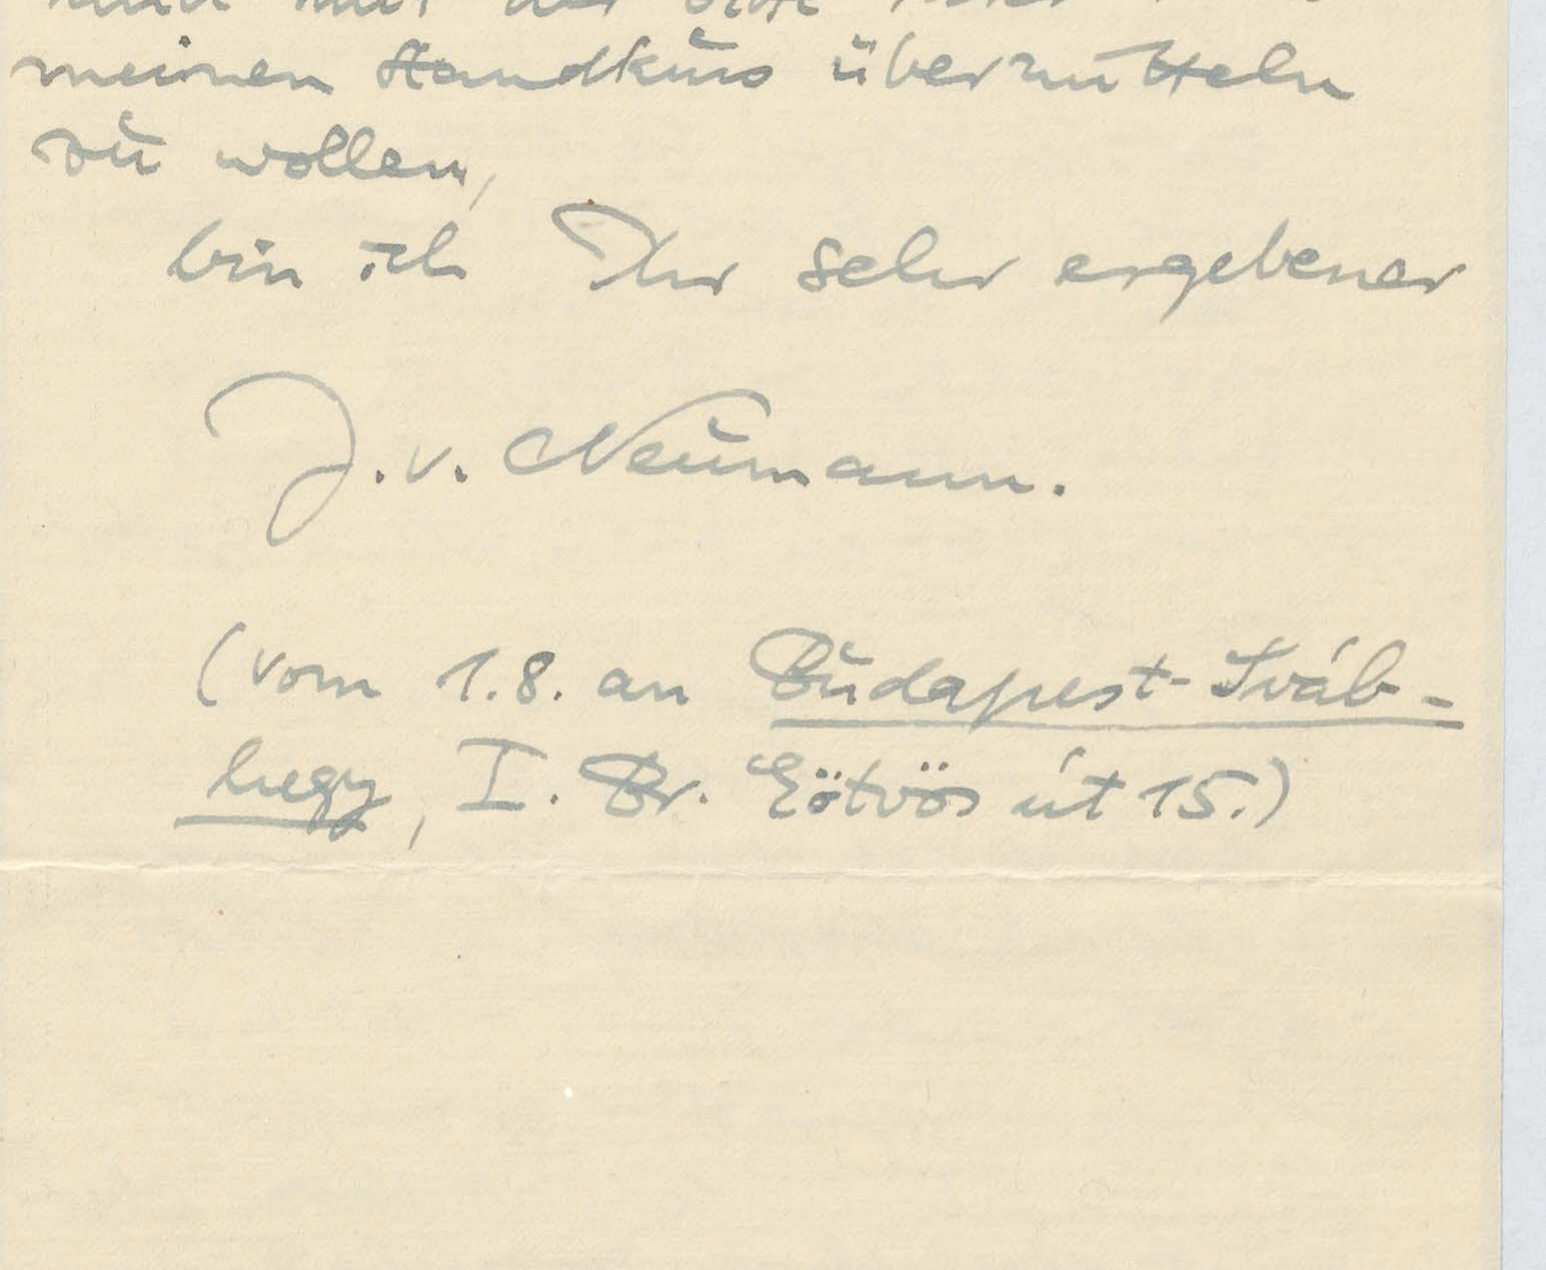 und mit der Bitte
meinen Handkuss übermitteln
zu wollen,
bin ich Ihr sehr ergebener
J. v. Neumann.
(vom 1.8. an Budapest-Sváb-
hegy, I. Br. Eötvös út 15.)